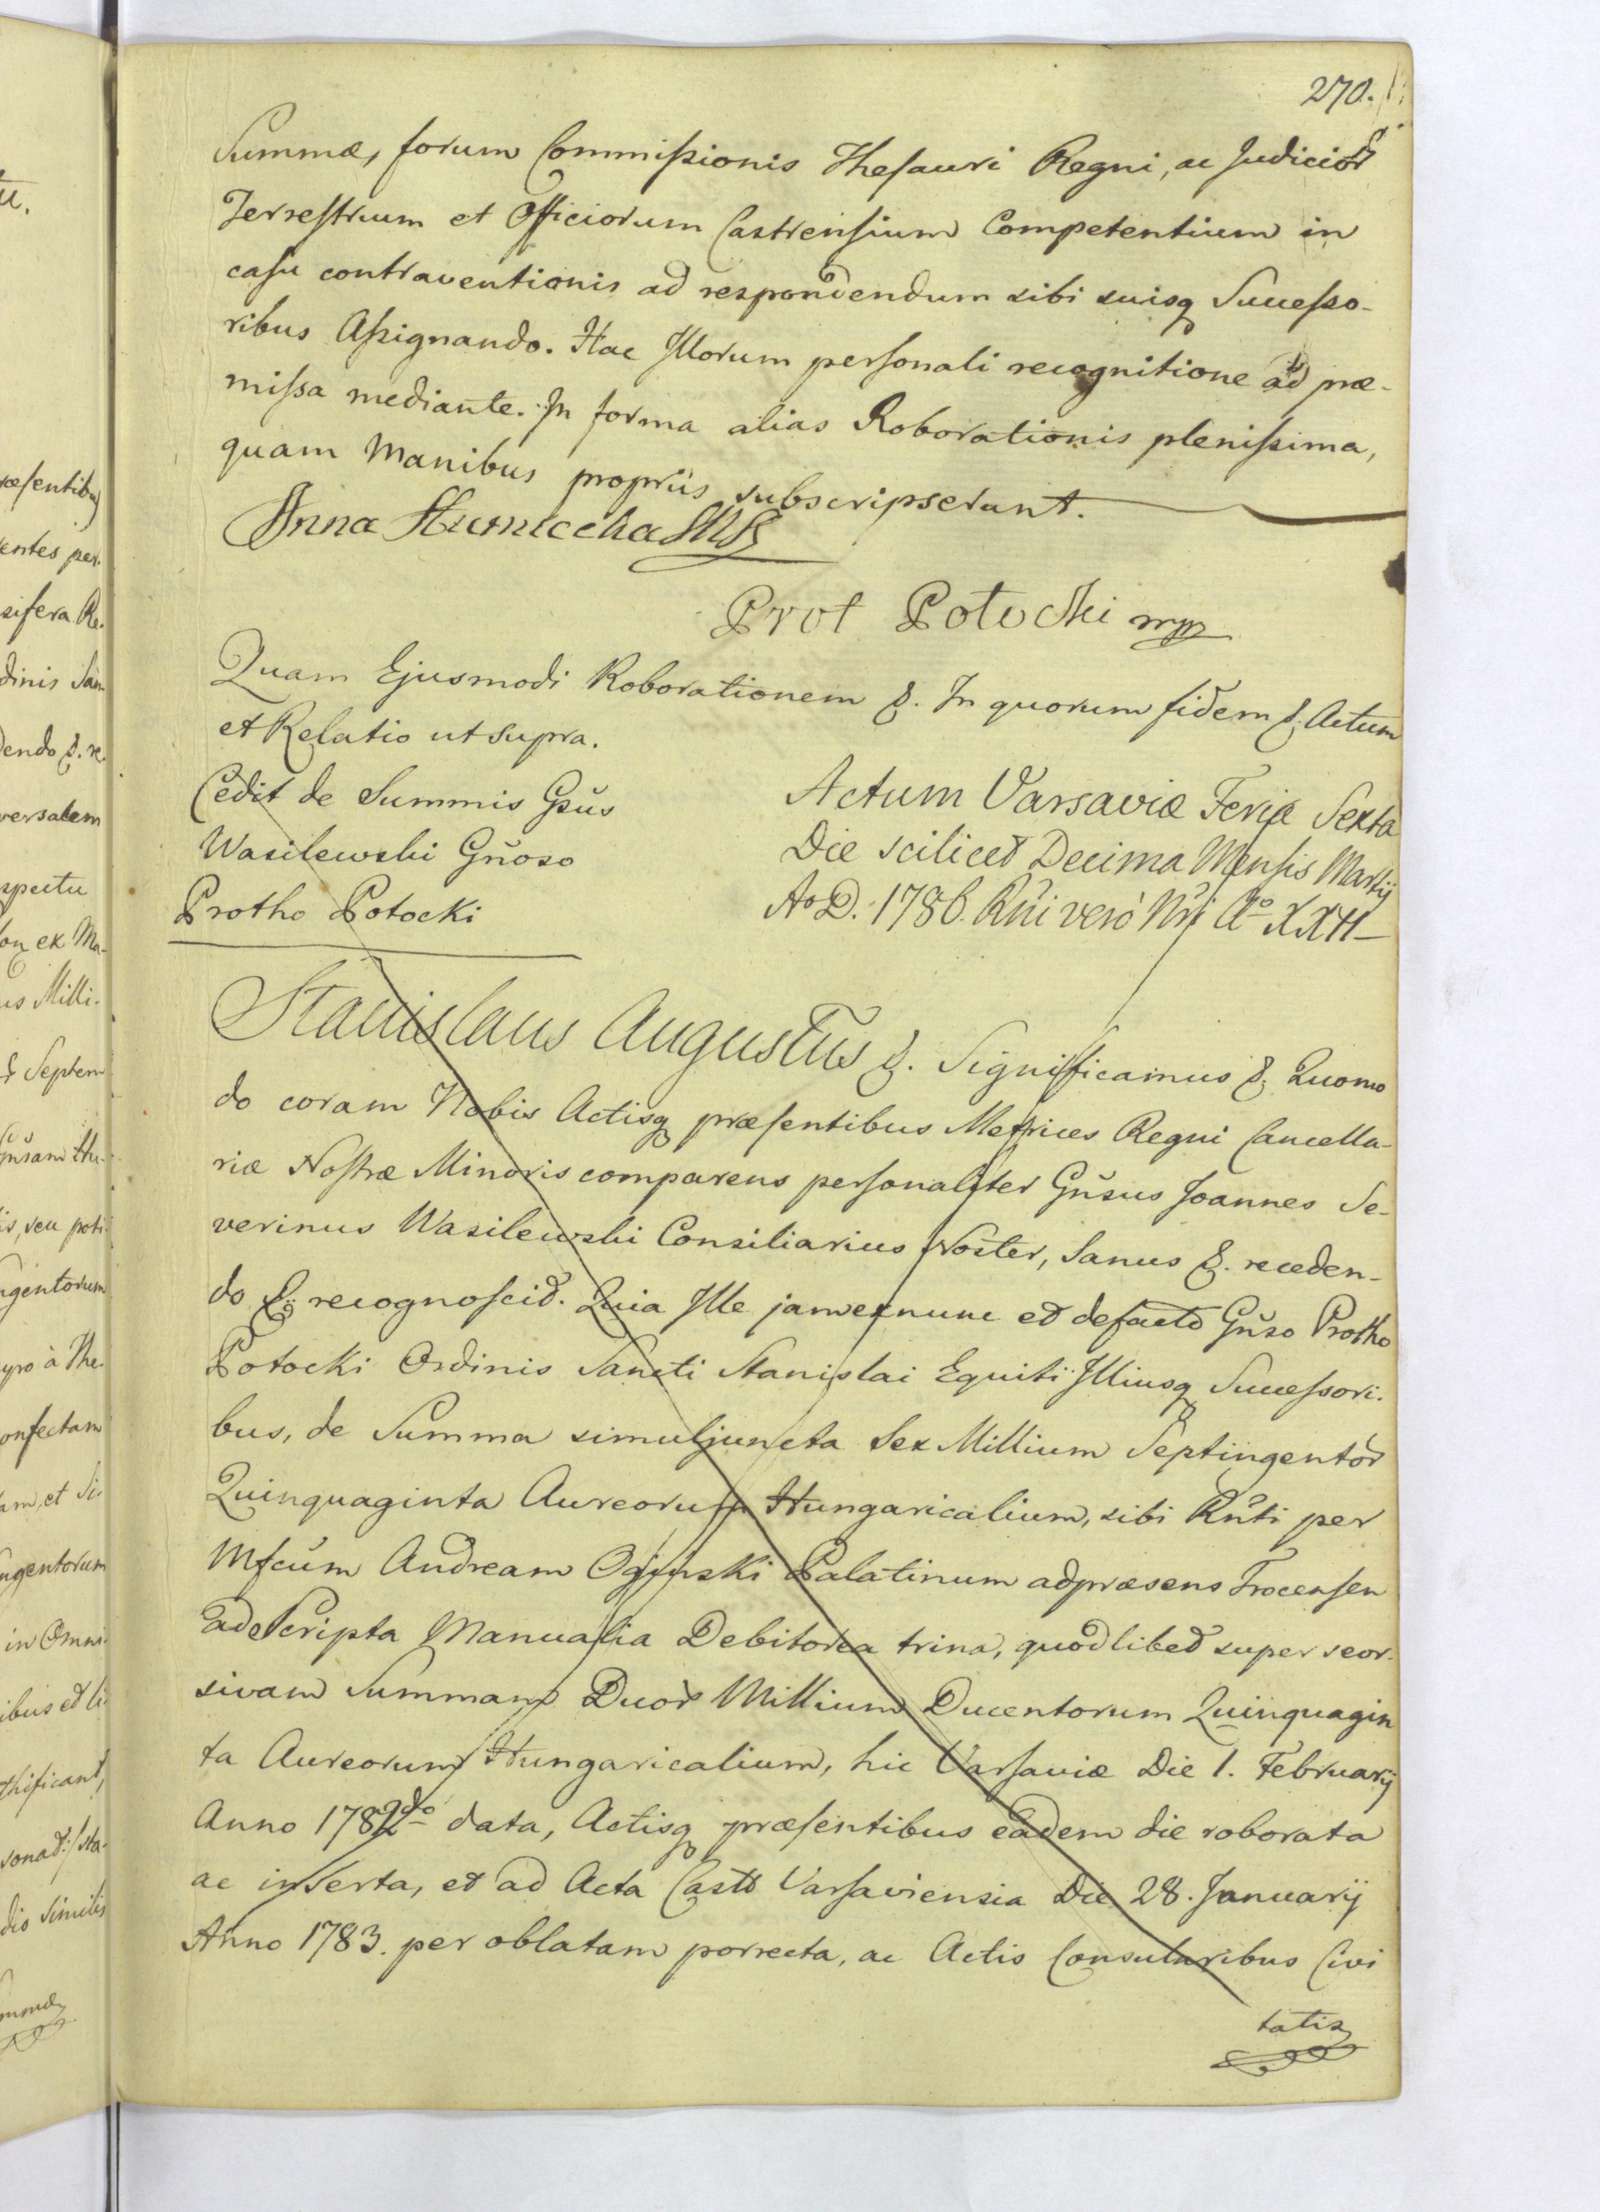 270.
Summæ, forum Commissionis Thesauri Regni, ac Judicior
Terrestrium et Officiorum Castrensium Competentium in
casu contraventionis ad respondendum sibi suisq Successo-
ribus Assignando. Hac Illorum personali recognitione ad præ-
missa mediante. In forma alias Roborationis plenissima,
quam Manibus propriis subscripserunt.
Anna
Prot Potocki mpp
Quam Ejusmodi Roborationem &. In quorum fidem &. Actum
et Relatio ut supra.
Cedit de Summis Gsŭs
Wasilewski Gñoso
Protho Potocki
Actum Varsaviæ Feria Sexta
Die scilicet Decima Mensis Martij
Ao D. 1786. Rñi verò Nri Aº XXII
Stanislaus Augustus &. Significamus &. Quomo
do coram Nobis Actisq præsentibus Metrices Regni Cancella-
riæ Nostræ Minoris comparens personaliter Gñsus Joannes Se-
verinus Wasilewski Consiliarius Noster, Sanus &. receden-
do &. recognoscit. Quia Ille jam ex nunc et defacto Gñso Protho
Potocki Ordinis Sancti Stanislai Equiti Illiusq Successori-
bus, de Summa simul juncta Sex Millium Septingentor
Quinquaginta Aureorum Hungaricalium, sibi Rñti per
Mfcum Andream Oginski Palatinum adpræsens Trocensen
ad Scripta Manualia Debitorea trina, quodlibet super seor-
sivam Summam Duor Millium Ducentorum Quinquagin
ta Aureorum Hungaricalium, hic Varsaviæ Die 1. Februarij
Anno 1782do data, Actisq præsentibus eadem die roborata
ac inserta, et ad Acta Castr Varsaviensia Die 28. Januarij
Anno 1783. per oblatam porrecta, ac Actis Consularibus Civi
tatis